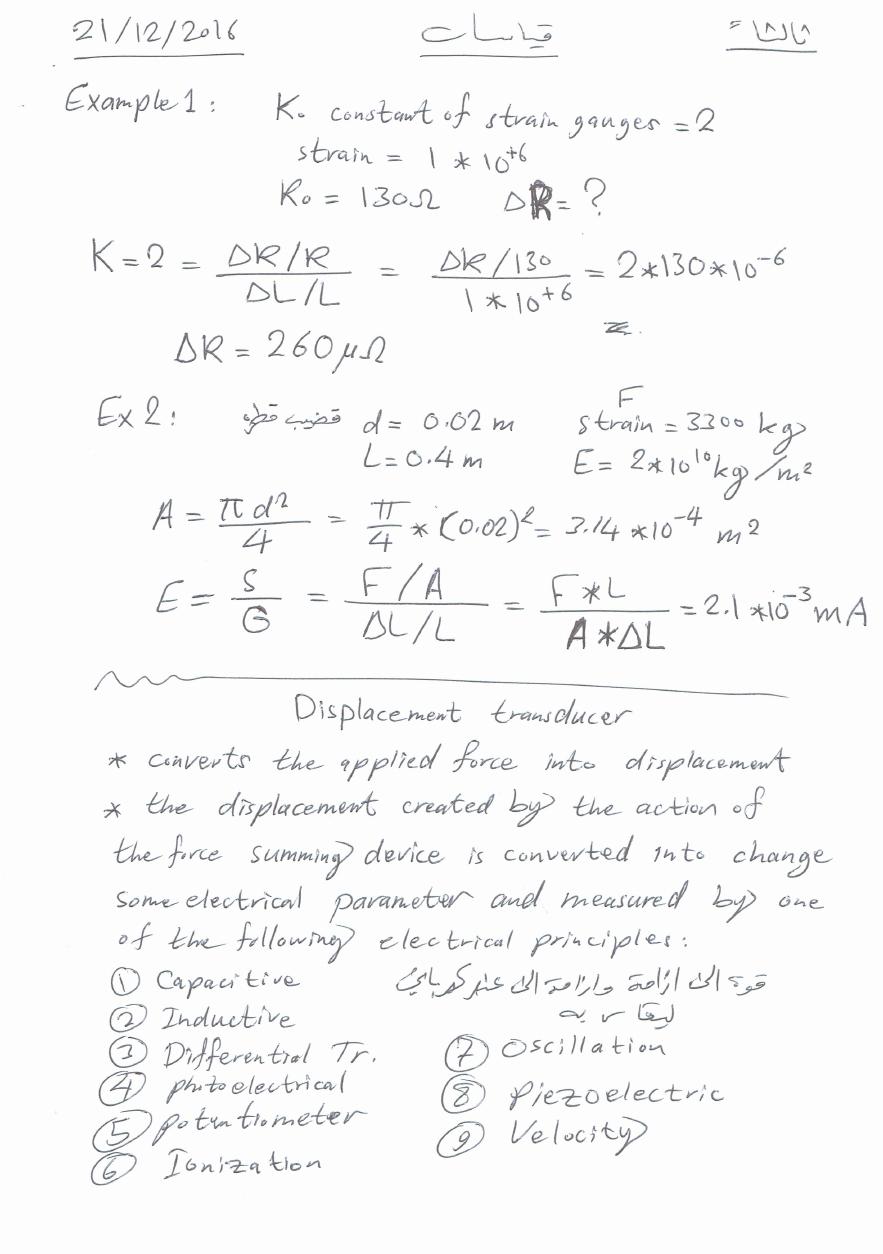 21/12/2016 قياسات ثالثاء
Example 1 : K. constant of strain gauges = 2
strain = 1 * 10+6
Ro = 130Ω ΔR = ?
K = 2 = ΔR/R / ΔL/L = ΔR/130 / 1 * 10+6 = 2*130*10-6
ΔR = 260 μΩ
Ex 2 : قضيب قطره d = 0.02 m F strain = 3300 kg
L = 0.4 m E = 2*10^10 kg/m²
A = πd²/4 = π/4 * (0.02)² = 3.14 *10-4 m²
E = S/G = F/A / ΔL/L = F*L / A*ΔL = 2.1 *10-3 mA
Displacement transducer
* converts the applied force into displacement
* the displacement created by the action of
the force summing device is converted into change
some electrical parameter and measured by one
of the following electrical principles :
① Capacitive قوة الى ازاحة وازاحة الى عنصر كهربائي
② Inductive ليقاس به
③ Differential Tr. ⑦ Oscillation
④ photoelectrical ⑧ Piezoelectric
⑤ potentiometer ⑨ Velocity
⑥ Ionization